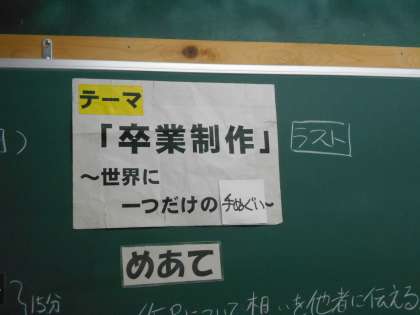 テーマ
「卒業制作」
ラスト
～世界に
一つだけの手ぬぐい～
めあて
15分
について想いを他者に伝える